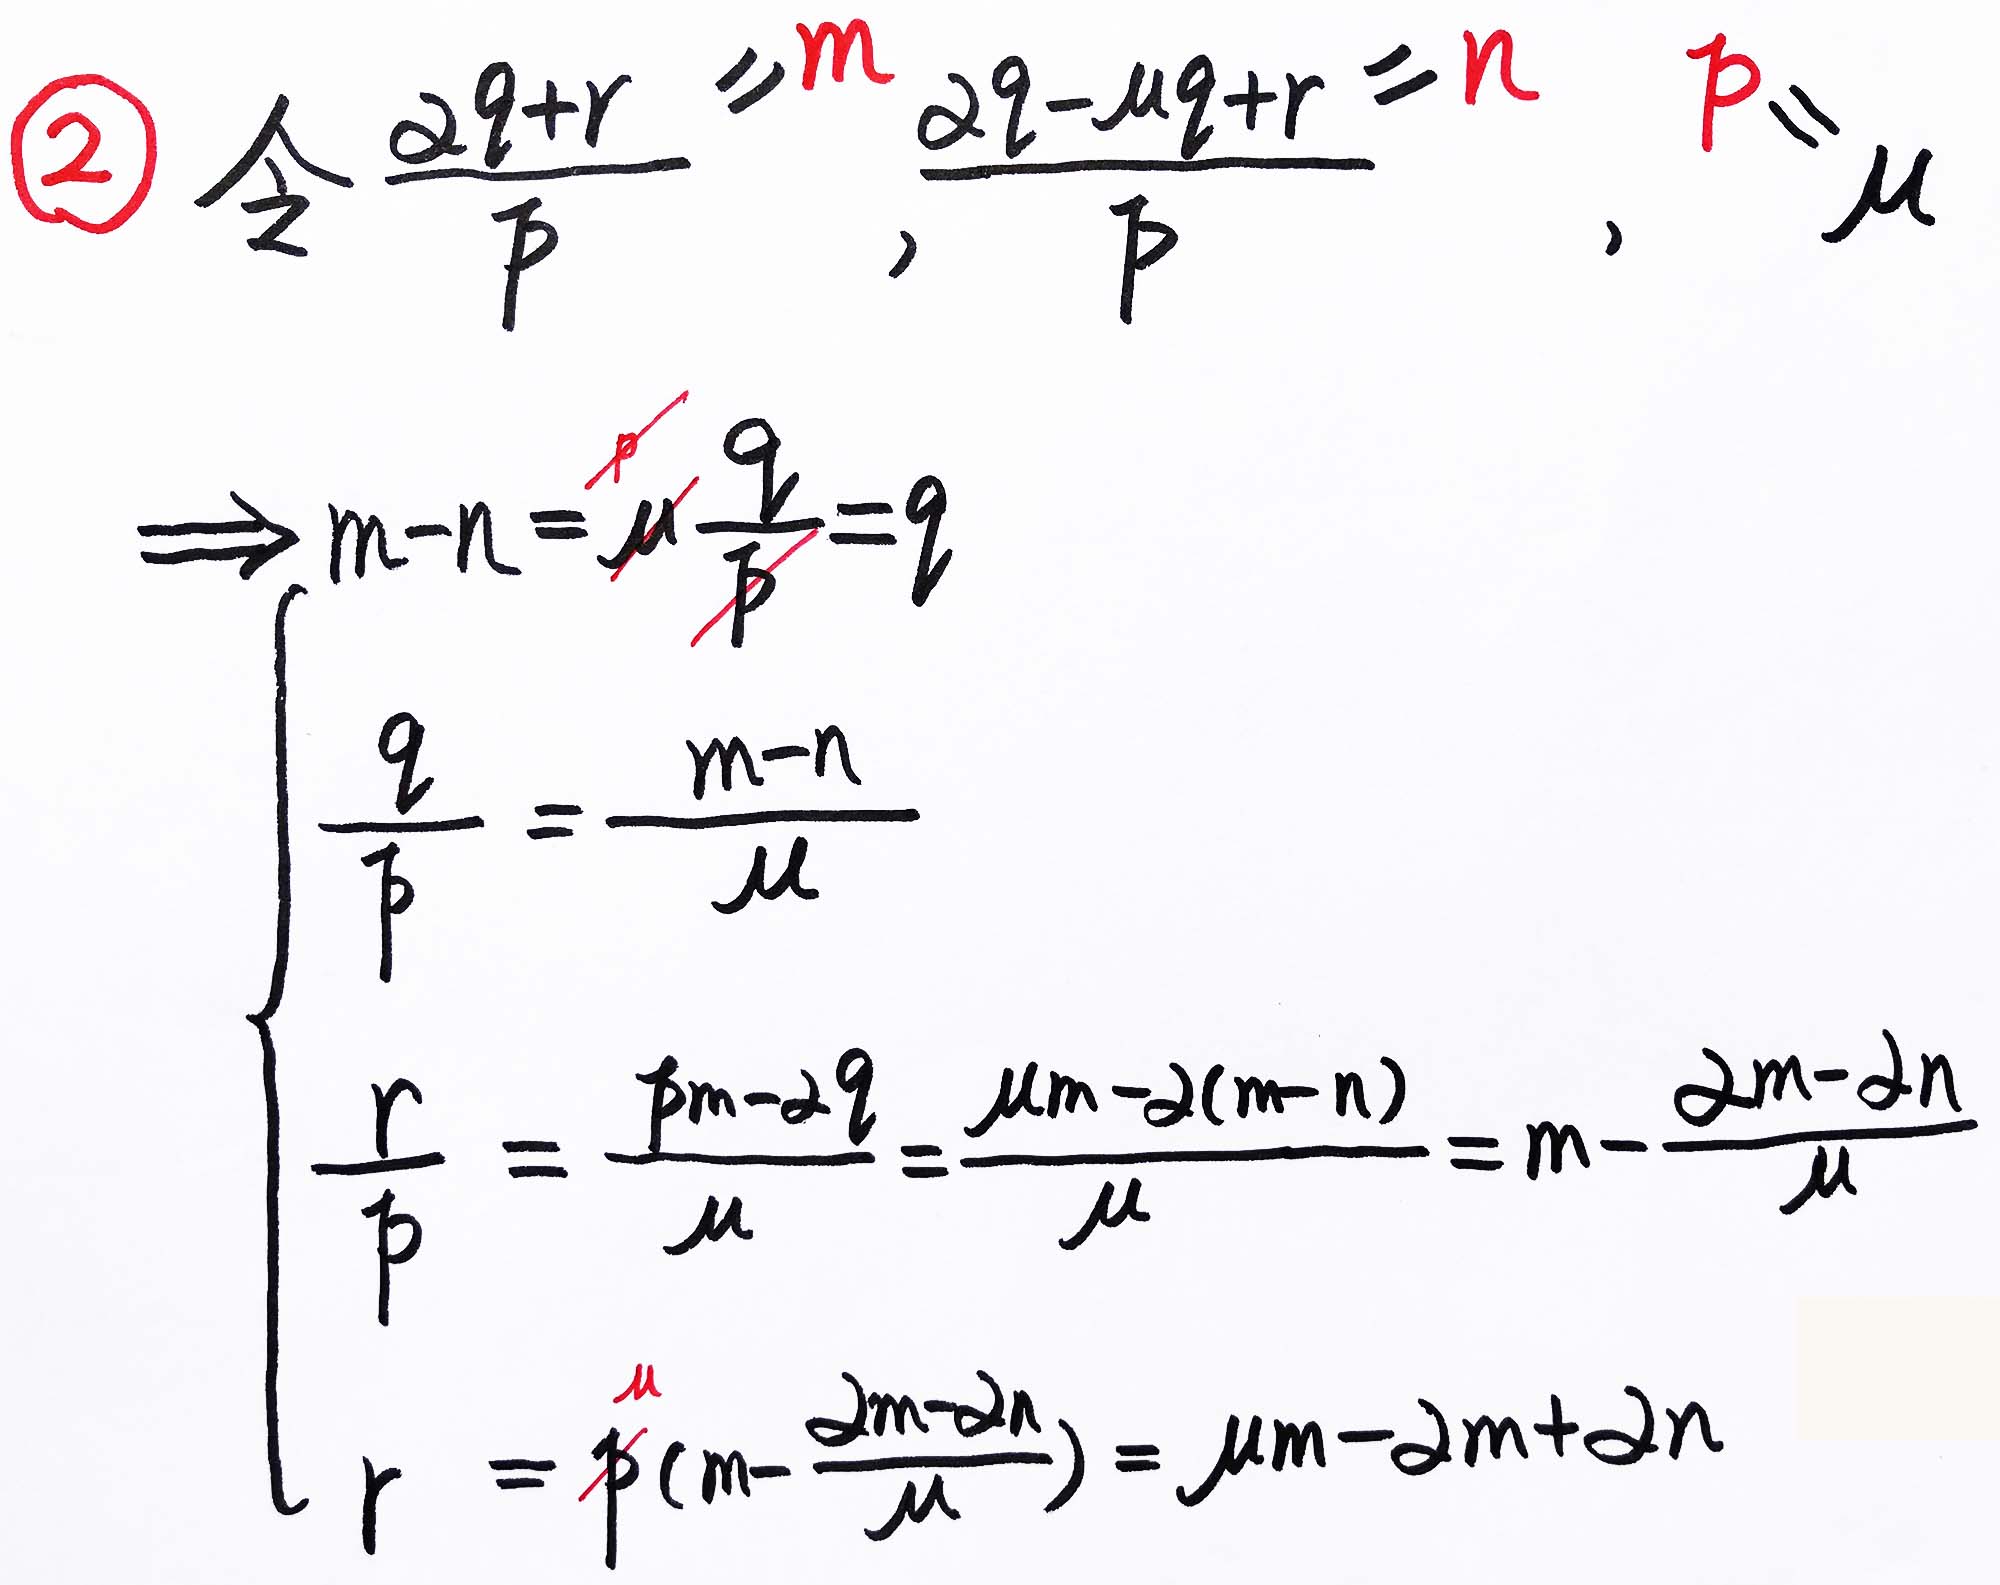 ② 令 \frac{2q+r}{p} = m , \frac{2q-μq+r}{p} = n , p = μ
⇒ m-n = \overset{p}{μ} \frac{q}{p} = q
\frac{q}{p} = \frac{m-n}{μ}
\frac{r}{p} = \frac{pm-2q}{μ} = \frac{μm-2(m-n)}{μ} = m - \frac{2m-2n}{μ}
r = \overset{μ}{p} (m - \frac{2m-2n}{μ}) = μm-2m+2n